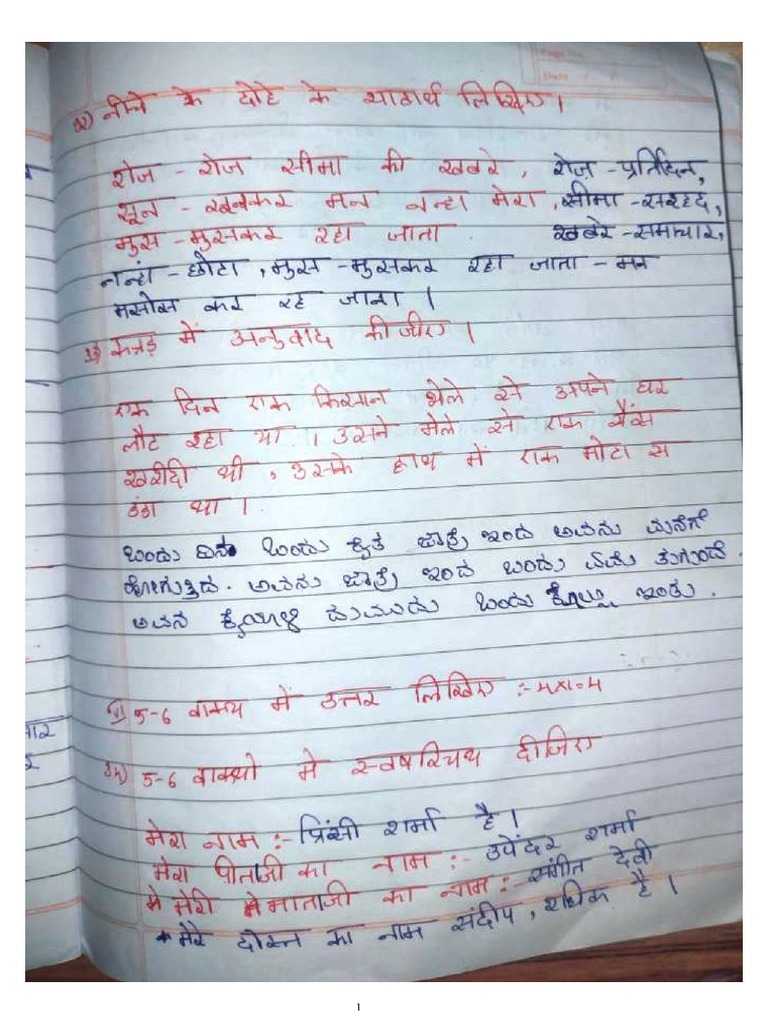 32) नीचे के दोहे के भावार्थ लिखिए।
रोज - रोज सीमा की खबरे, रोज - प्रतिदिन,
सून - मन नन्हा मेरा, सीमा - सरहद,
मुस - मुसकर रहा जाता खबरे - समाचार,
नन्हां - छोटा, मुस - मुसकर रहा जाता - मन
मसोस कर रह जाना।
33) कन्नड़ में अनुवाद कीजीए।
एक दिन एक किसान मेले से अपने घर
लौट रहा था। उसने मेले से एक भैंस
खरीदी थी, उसके हाथ में एक मोटा स
डंडा था।
ಒಂದು ದಿನ ಒಂದು ರೈತ ಜಾತ್ರೆ ಇಂದ ಅವನು ಮನೆಗೆ
ಹೋಗುತ್ತಿದ. ಅವನು ಜಾತ್ರೆ ಇಂದ ಒಂದು ಎಮೆ
ಅವನ ಕೈಯಲ್ಲಿ ಒಂದು ಕೋಲ್ಲು ಇಂದು.
VI) 5-6 वाक्य में उत्तर लिखिए :- 4x1=4
34) 5-6 वाक्यो मे स्वपरिचय दीजिए
मेरा नाम :- प्रिंसी शर्मा है।
मेरा पीताजी का नाम :- उपेंदर शर्मा
मेरी माताजी का नाम :- संगीत देवी
मेरे दोस्त का नाम संदीप, राधिक है।
1